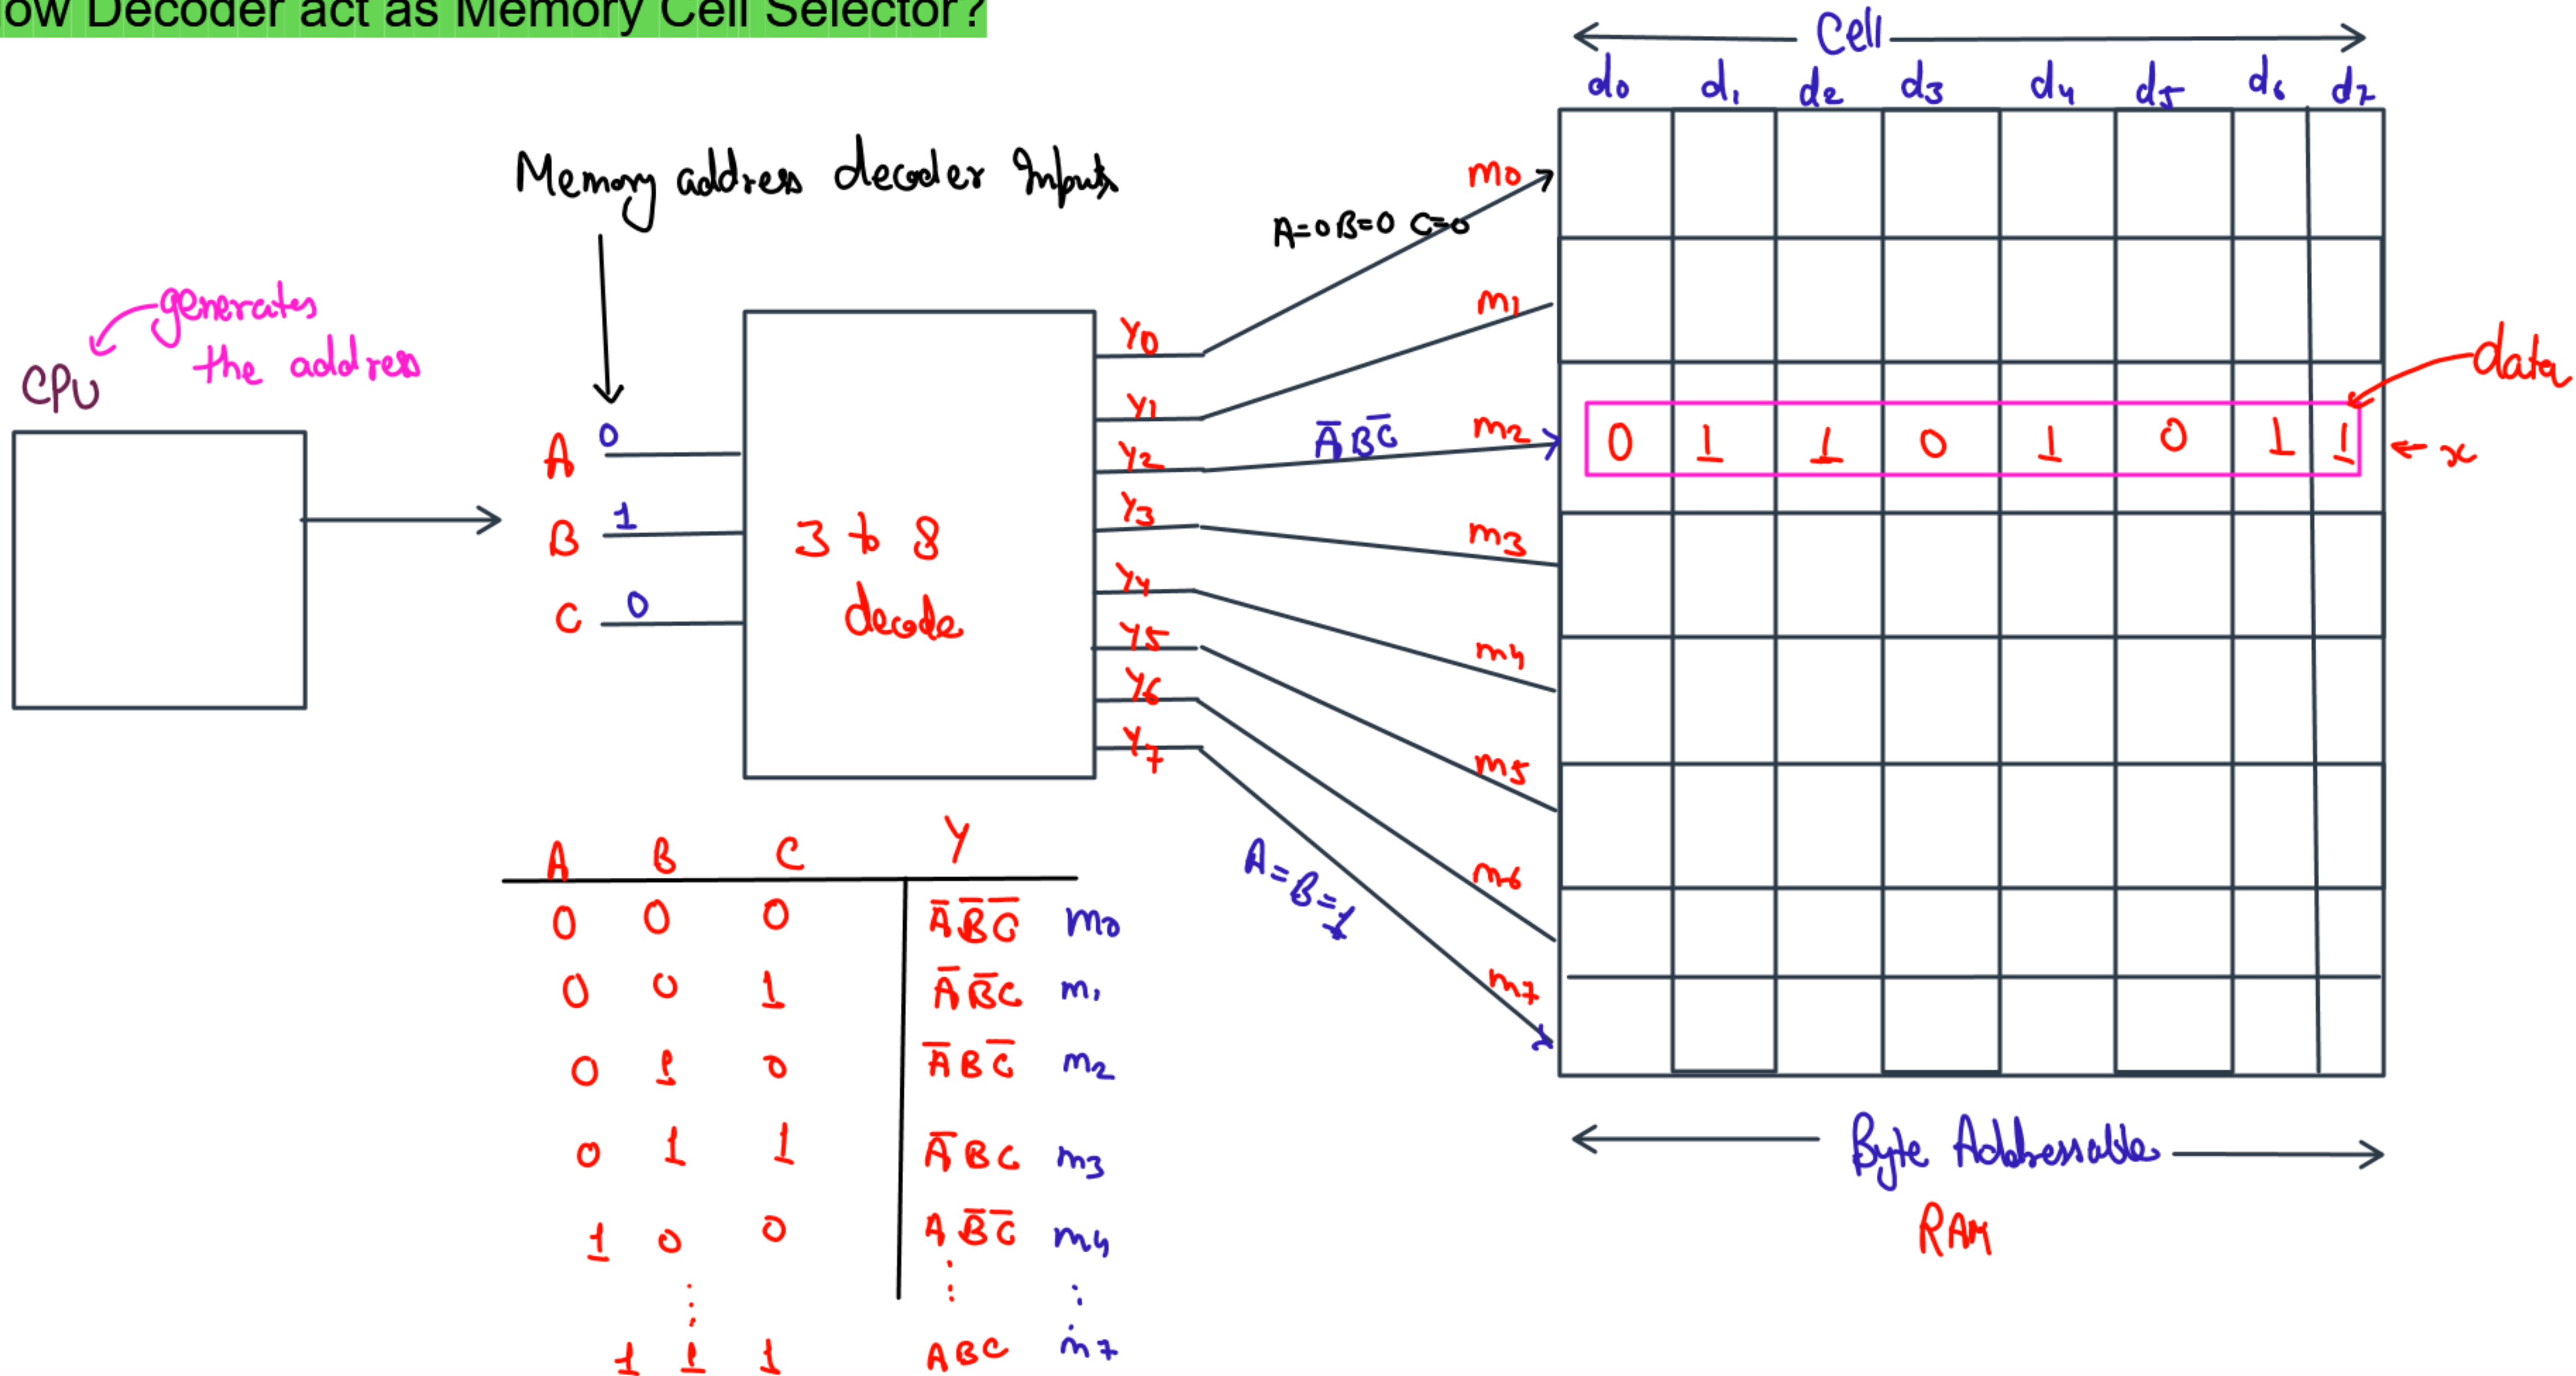 low Decoder act as Memory Cell Selector?
Cell
d0 d1 d2 d3 d4 d5 d6 d7
Memory address decoder Inputs
generates
the address
CPU
A 0
B 1
C 0
3 to 8
decode
Y0
Y1
Y2
Y3
Y4
Y5
Y6
Y7
A=0 B=0 C=0
A̅BC̅
A=B=1
m0
m1
m2
m3
m4
m5
m6
m7
0 1 1 0 1 0 1 1
data
x
Byte Addressable
RAM
A B C Y
0 0 0 A̅B̅C̅ m0
0 0 1 A̅B̅C m1
0 1 0 A̅BC̅ m2
0 1 1 A̅BC m3
1 0 0 AB̅C̅ m4
1 1 1 ABC m7